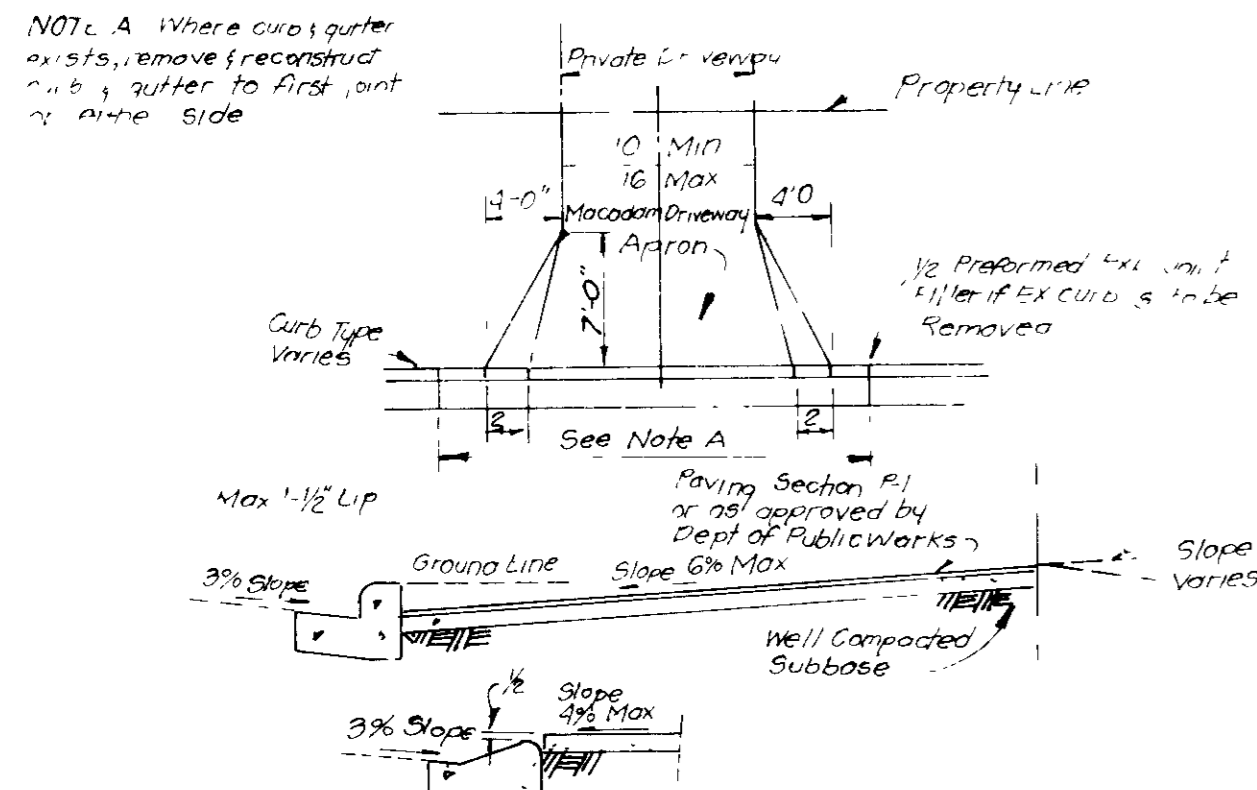 NOTE A Where curb & gutter
exists, remove & reconstruct
& gutter to first joint
side
Private
Property Line
10 Min
16 Max
4'-0"
4'0
Macadam Driveway
Apron
7'-0"
1/2 Preformed
Filler if Ex curb is to be
Removed
Curb Type
Varies
2
2
See Note A
Max 1-1/2" Lip
Paving Section P-1
or as approved by
Dept of Public Works
Ground Line
Slope 6% Max
3% Slope
Slope
Varies
Well Compacted
Subbase
1/2
Slope
4% Max
3% Slope